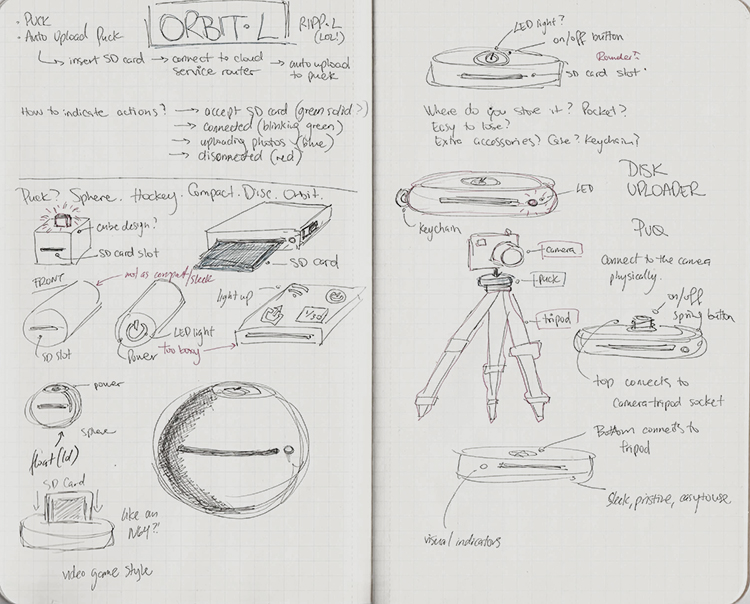 · PUCK
· Auto Upload Puck
ORBIT·L
RIPP·L
(LOL!)
↳ insert SD card → connect to cloud service router → auto upload to puck
How to indicate actions? → accept SD card (green solid?)
→ connected (blinking green)
→ uploading photos (blue)
→ disconnected (red)
Puck? Sphere. Hockey. Compact. Disc. Orbit.
cube design?
SD card slot
SD card
FRONT
not as compact/sleek
SD slot
LED light
Power
light up
too boxy
power
sphere
SD Card
like an N64?!
video game style
LED light?
on/off button
Rounder?
SD card slot
Where do you store it? Pocket?
Easy to lose?
Extra accessories? Case? Keychain?
LED
Keychain
DISK UPLOADER
PUQ
camera
puck
tripod
Connect to the camera physically.
on/off spring button
top connects to camera-tripod socket
Bottom connects to tripod
sleek, pristine, easy to use
visual indicators